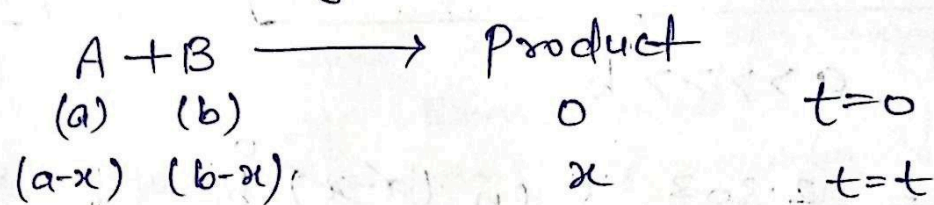 A + B ⟶ Product
(a) (b) 0 t=0
(a-x) (b-x) x t=t